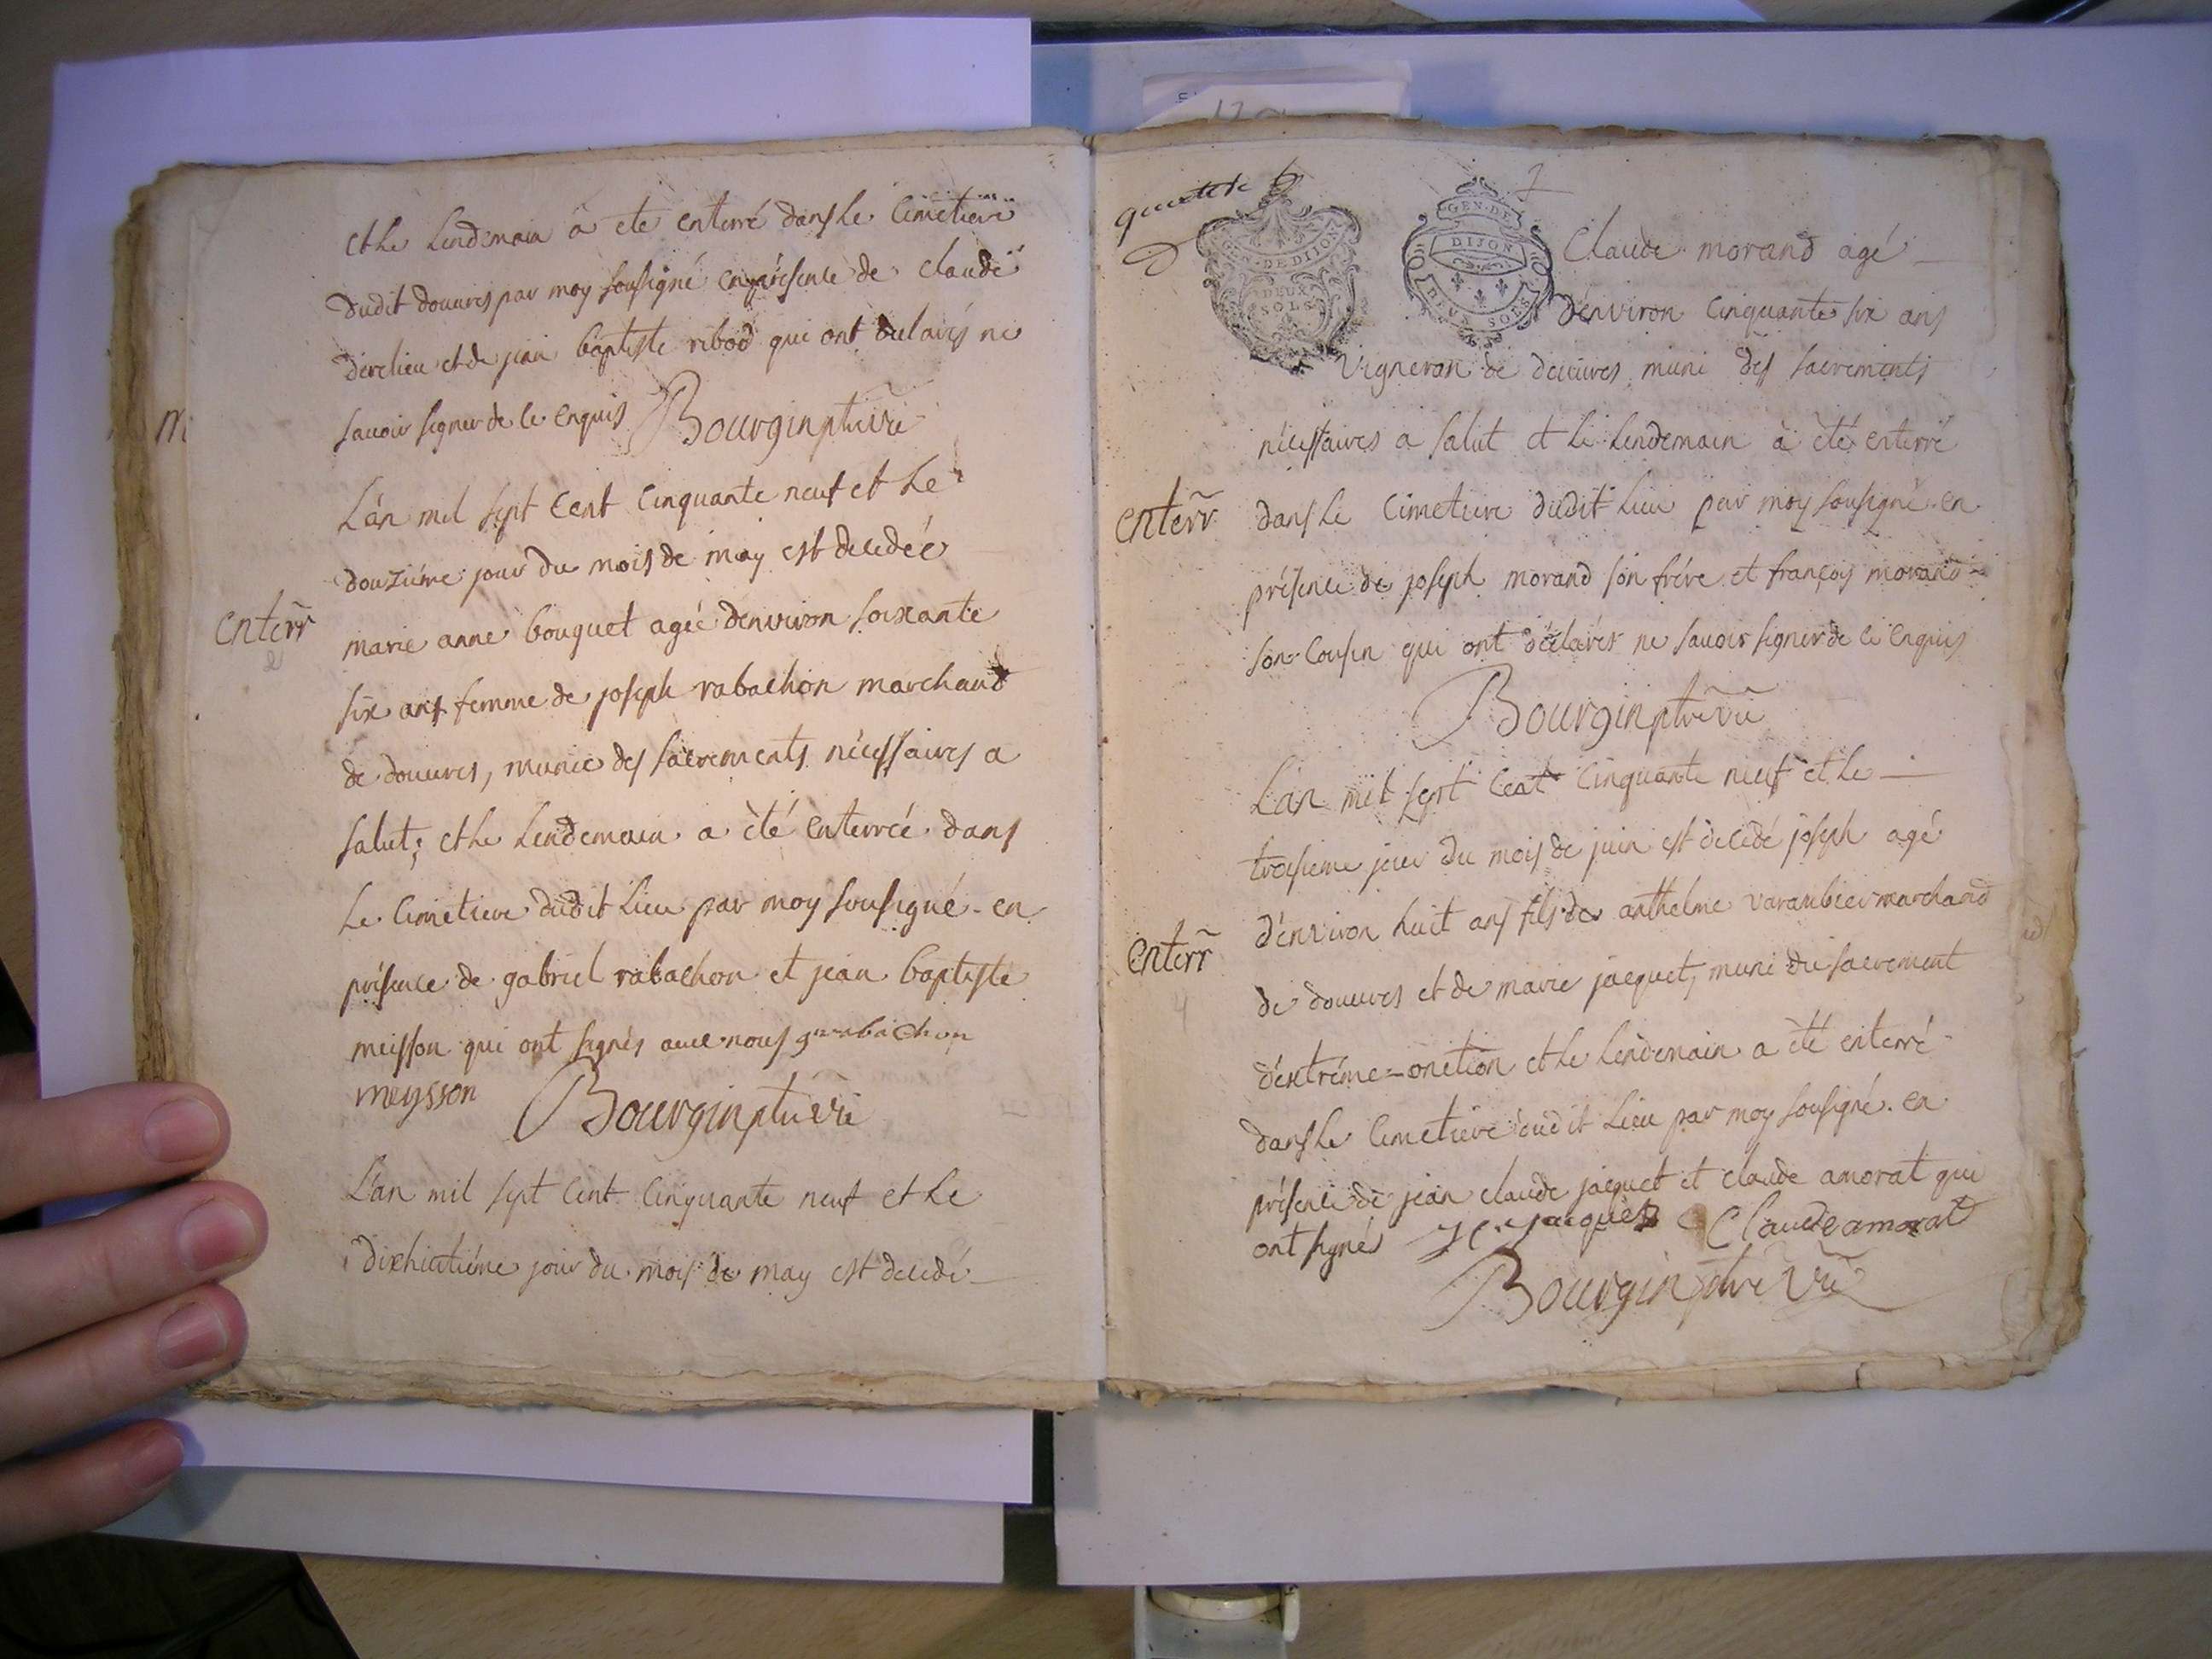 et le lendemain à eté enterré dans le Cimetiere
dudit douures par moy sousigné en présence de claude
direlieu et de jean baptiste ribod qui ont declarés ne
sauoir signer de ce enquis Bourgin ptre vic
L'an mil sept cent cinquante neuf et le
douziéme jour du mois de may est decedée
Enterr
marie anne bouquet agée denviron soixante
six ans femme de joseph rabachon marchand
de douures, munie des sacrements nécessaires a
salut; et le lendemain a été enterrée dans
le cimetiere dudit lieu par moy sousigné en
présence de gabriel rabachon et jean baptiste
meisson qui ont signés avec nous g rabachon
meysson Bourgin ptre vic
L'an mil sept cent cinquante neuf et le
dixhuitiéme jour du mois de may est decedé
GEN. DE DIJON
DEUX
SOLS
GEN. DE
DIJON
DEUX SOLS
Claude morand agé
d'environ cinquante six ans
vigneron de douures muni des sacrements
nécessaires a salut et le lendemain à été enterré
Enterr
dans le cimetiere dudit lieu par moy sousigné en
présence de joseph morand son frére et françois morand
son cousin qui ont déclarés ne savoir signer de ce enquis
Bourgin ptre vic
L'an mil sept cent cinquante neuf et le
troisieme jour du mois de juin est décedé joseph agé
d'environ huit ans fils de anthelme varambier marchand
Enterr
de douures et de marie jacquet, muni du sacrement
d'extréme-onction et le lendemain a été enterré
dans le cimetiere dudit lieu par moy sousigné en
présence de jean claude jacquet et claude amorat qui
ont signés J C jacquet Claude amorat
Bourgin ptre vic